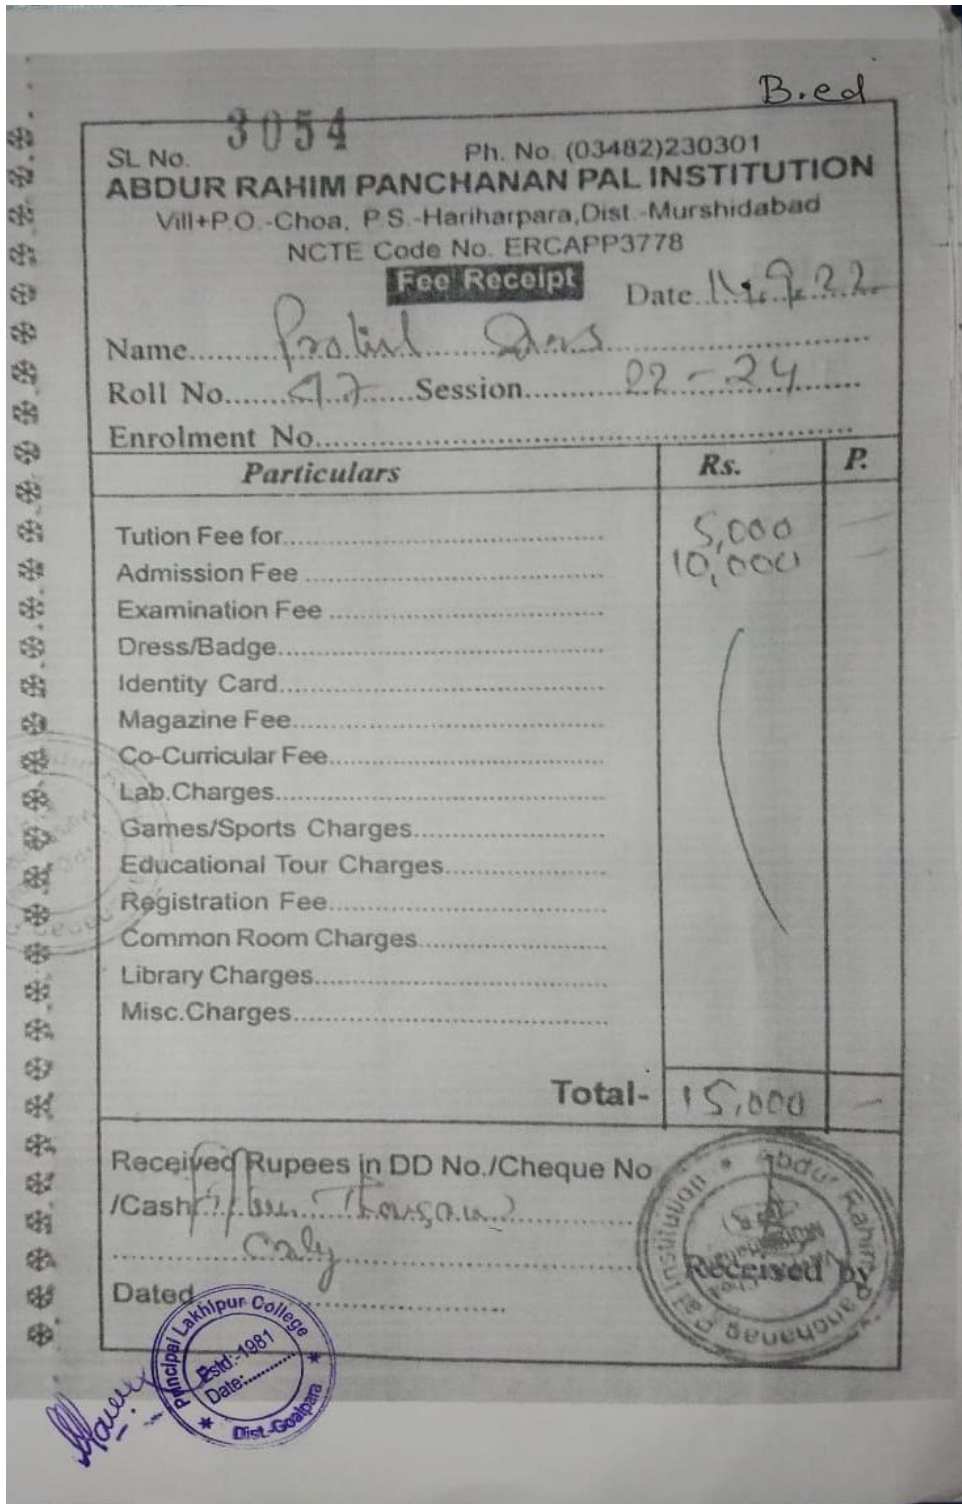 B.ed
3054
SL No.
Ph. No. (03482)230301
ABDUR RAHIM PANCHANAN PAL INSTITUTION
Vill+P.O.-Choa, P.S.-Hariharpara,Dist.-Murshidabad
NCTE Code No. ERCAPP3778
Fee Receipt
Date
Name
Roll No. Session 22-24
Enrolment No.
Particulars Rs. P.
Tution Fee for 5,000 —
Admission Fee 10,000 —
Examination Fee
Dress/Badge
Identity Card
Magazine Fee
Co-Curricular Fee
Lab.Charges
Games/Sports Charges
Educational Tour Charges
Registration Fee
Common Room Charges
Library Charges
Misc.Charges
Total- 15,000 —
Received Rupees in DD No./Cheque No
/Cash
Only
Dated
Received by
Abdur Rahim Panchanan Pal Institution
Principal Lakhipur College
Estd:-1981
Date:
Dist.-Goalpara